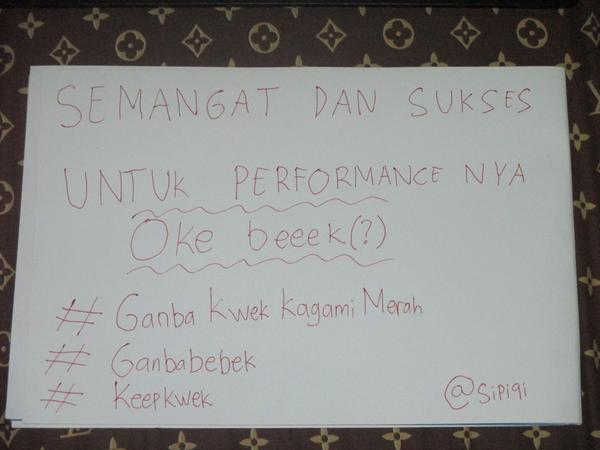 SEMANGAT DAN SUKSES
UNTUK PERFORMANCE NYA
Oke beeek(?)
# Ganba Kwek Kagami Merah
# Ganbabebek
# Keepkwek
@Sipiqi